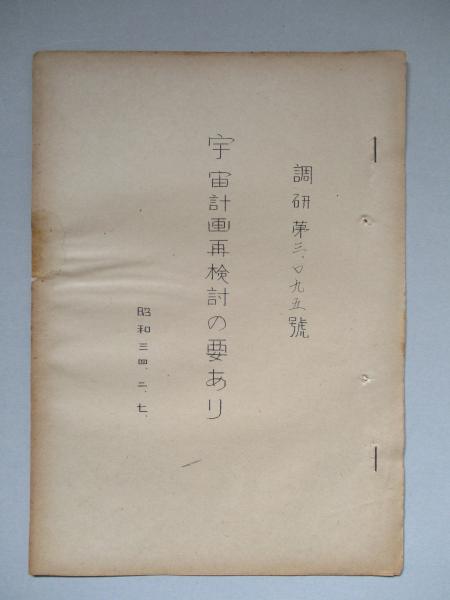 調研第三、〇九五號
宇宙計画再検討の要あり
昭和三四、二、七、